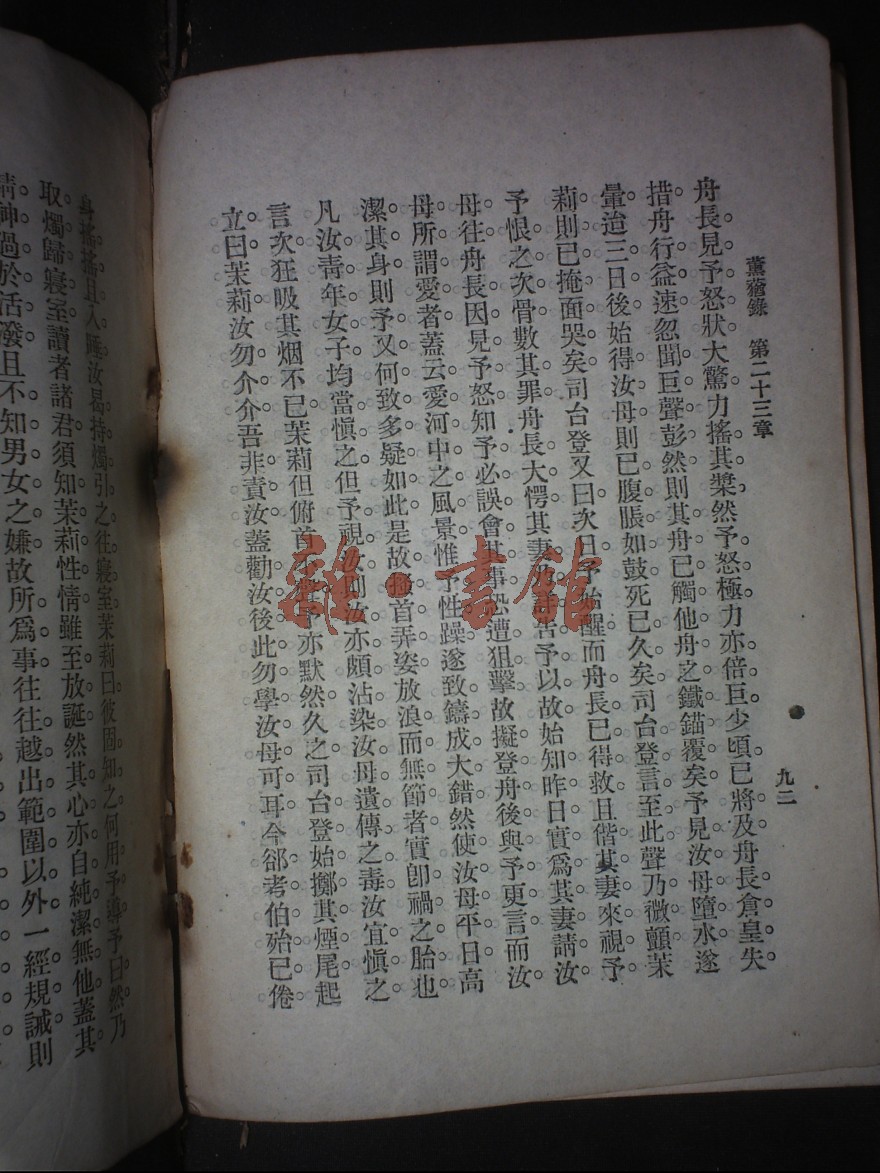 薰蕕錄　第二十三章
九二
舟長見予怒狀大驚力搖其槳然予怒極力亦倍巨少頃已將及舟長倉皇失
措舟行益速忽聞巨聲彭然則其舟已觸他舟之鐵錨覆矣予見汝母墮水遂
暈迨三日後始得汝母則已腹脹如鼓死已久矣司台登言至此聲乃微顫茉
莉則已掩面哭矣司台登又曰次日予始醒而舟長已得救且偕其妻來視予
予恨之次骨數其罪舟長大愕其妻告予以故始知昨日實爲其妻請汝
母往舟長因見予怒知予必誤會其事恐遭狙擊故擬登舟後與予更言而汝
母所謂愛者蓋云愛河中之風景惟予性躁遂致鑄成大錯然使汝母平日高
潔其身則予又何致多疑如此是故搔首弄姿放浪而無節者實卽禍之胎也
凡汝青年女子均當愼之但予視汝則汝亦頗沾染汝母遺傳之毒汝宜愼之
言次狂吸其烟不已茉莉但俯首不予亦默然久之司台登始擲其煙尾起
立曰茉莉汝勿介介吾非責汝蓋勸汝後此勿學汝母可耳今郤老伯殆已倦
身搖搖且入睡汝曷持燭引之往寢室茉莉曰彼固知之何用予導予曰然乃
取燭歸寢室讀者諸君須知茉莉性情雖至放誕然其心亦自純潔無他蓋其
精神過於活潑且不知男女之嫌故所爲事往往越出範圍以外一經規誡則
雜·書館